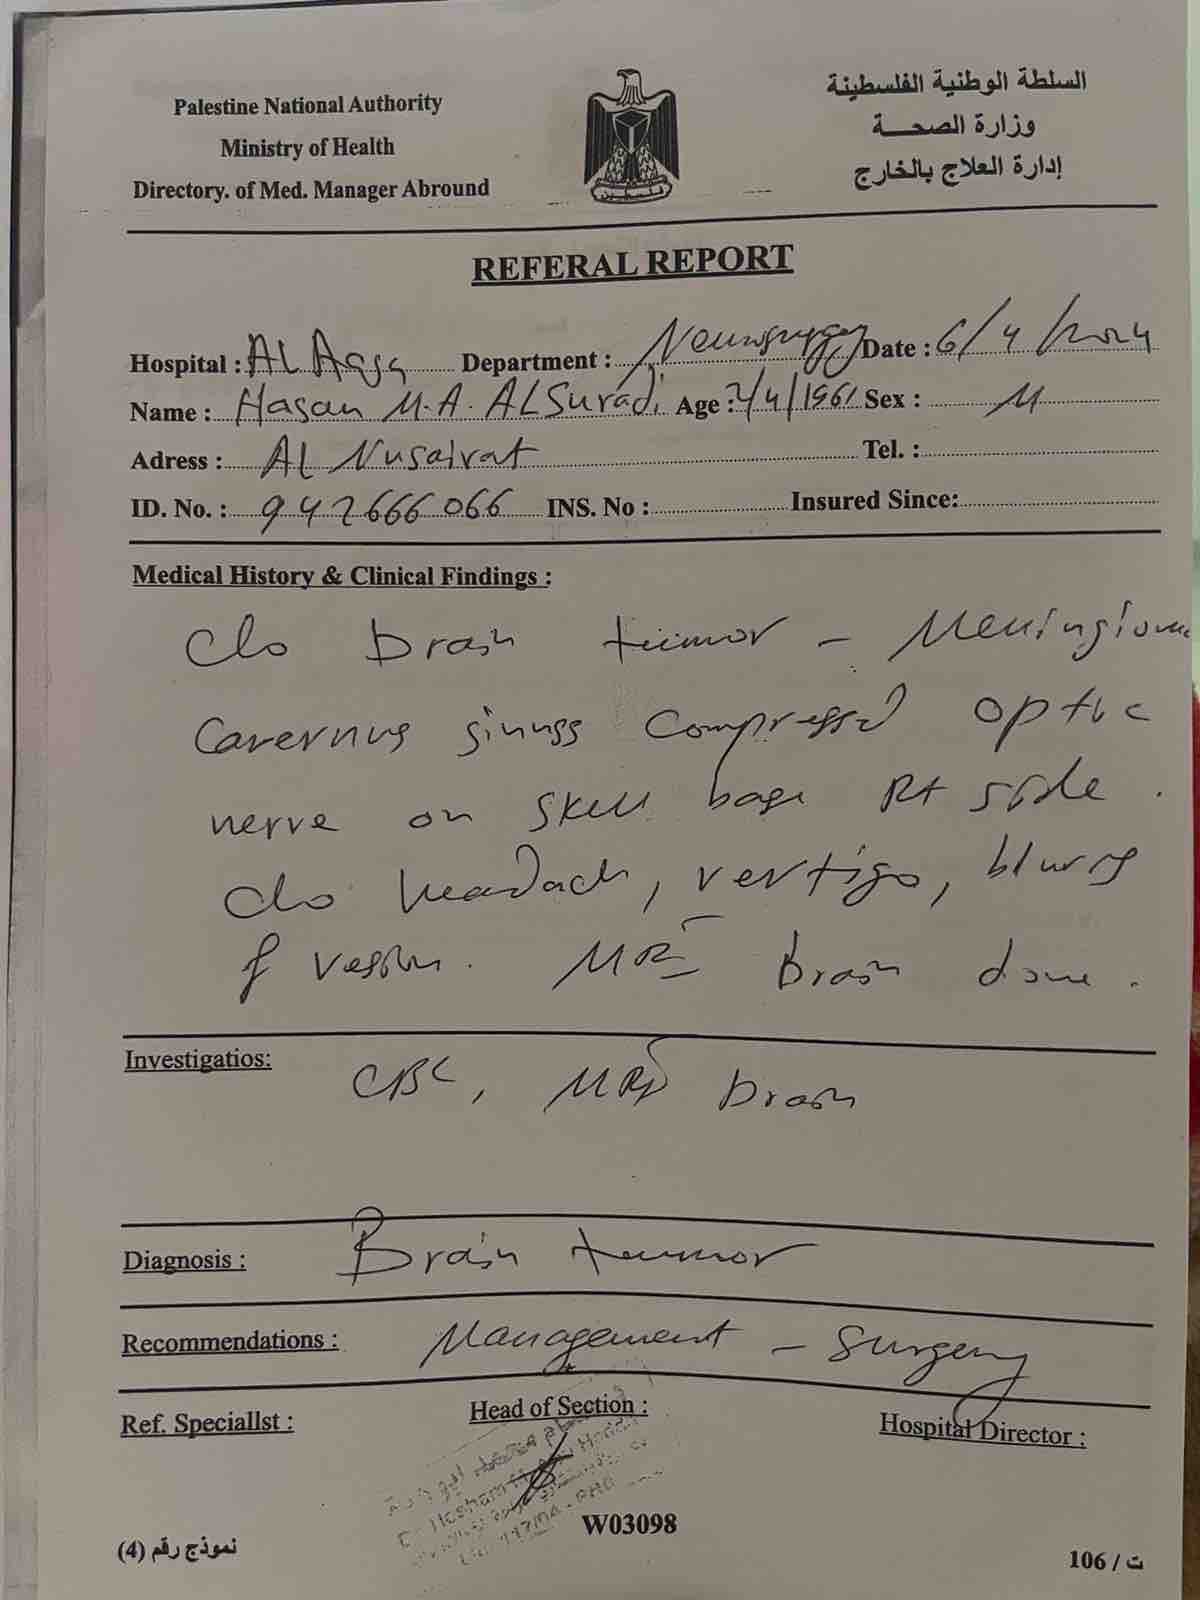 Palestine National Authority
Ministry of Health
Directory. of Med. Manager Abround
السلطة الوطنية الفلسطينية
وزارة الصحة
إدارة العلاج بالخارج
فلسطين
REFERAL REPORT
Hospital : AL Aqsa Department : Neurosurgery Date : 6/4/2024
Name : Hasan M.A. ALSuradi Age : 2/4/1961 Sex : M
Adress : AL Nusairat Tel. :
ID. No. : 942666066 INS. No : Insured Since:
Medical History & Clinical Findings :
C/o Brain tumor - Meningioma
Cavernus sinuss compressed optic
nerve on skull base Rt side .
C/o headach, vertigo, blurring
of vession. MRI Brain done .
Investigatios: CBC, MRI Brain
Diagnosis : Brain tumor
Recommendations : Management - Surgery
Ref. Speciallst : Head of Section : Hospital Director :
W03098
نموذج رقم (4)
ت / 106